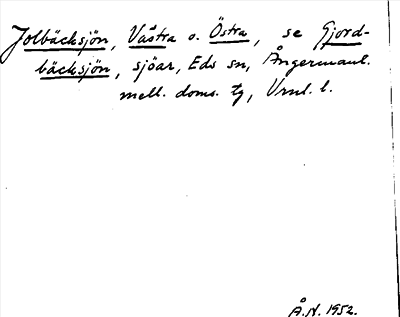 Jolbäcksjön, Västra o. Östra, se Gjord-
bäcksjön, sjöar, Eds sn, Ångermanl.
mell. doms. tg, Vrnl. l.
Å.N. 1952.